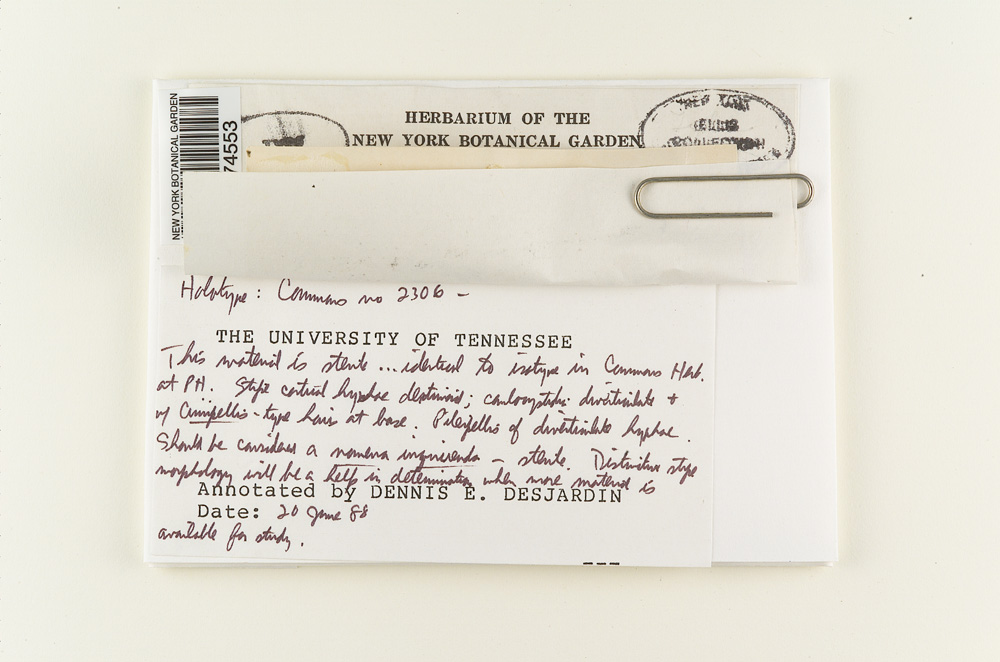 NEW YORK BOTANICAL GARDEN
74553
HERBARIUM OF THE
NEW YORK BOTANICAL GARDEN
NEW YORK
ELLIS
COLLECTION
Holotype: Commons no 2306 –
THE UNIVERSITY OF TENNESSEE
This material is sterile ... identical to isotype in Commons Herb.
at PH. Stipe cortical hyphae dextrinoid; caulocystidia diverticulate +
w/ Crinipellis-type hairs at base. Pileipellis of diverticulate hyphae.
Should be considered a nomena inquirenda – sterile. Distinctive stipe
morphology will be a help in determination when more material is
Annotated by DENNIS E. DESJARDIN
Date: 20 June 88
available for study.